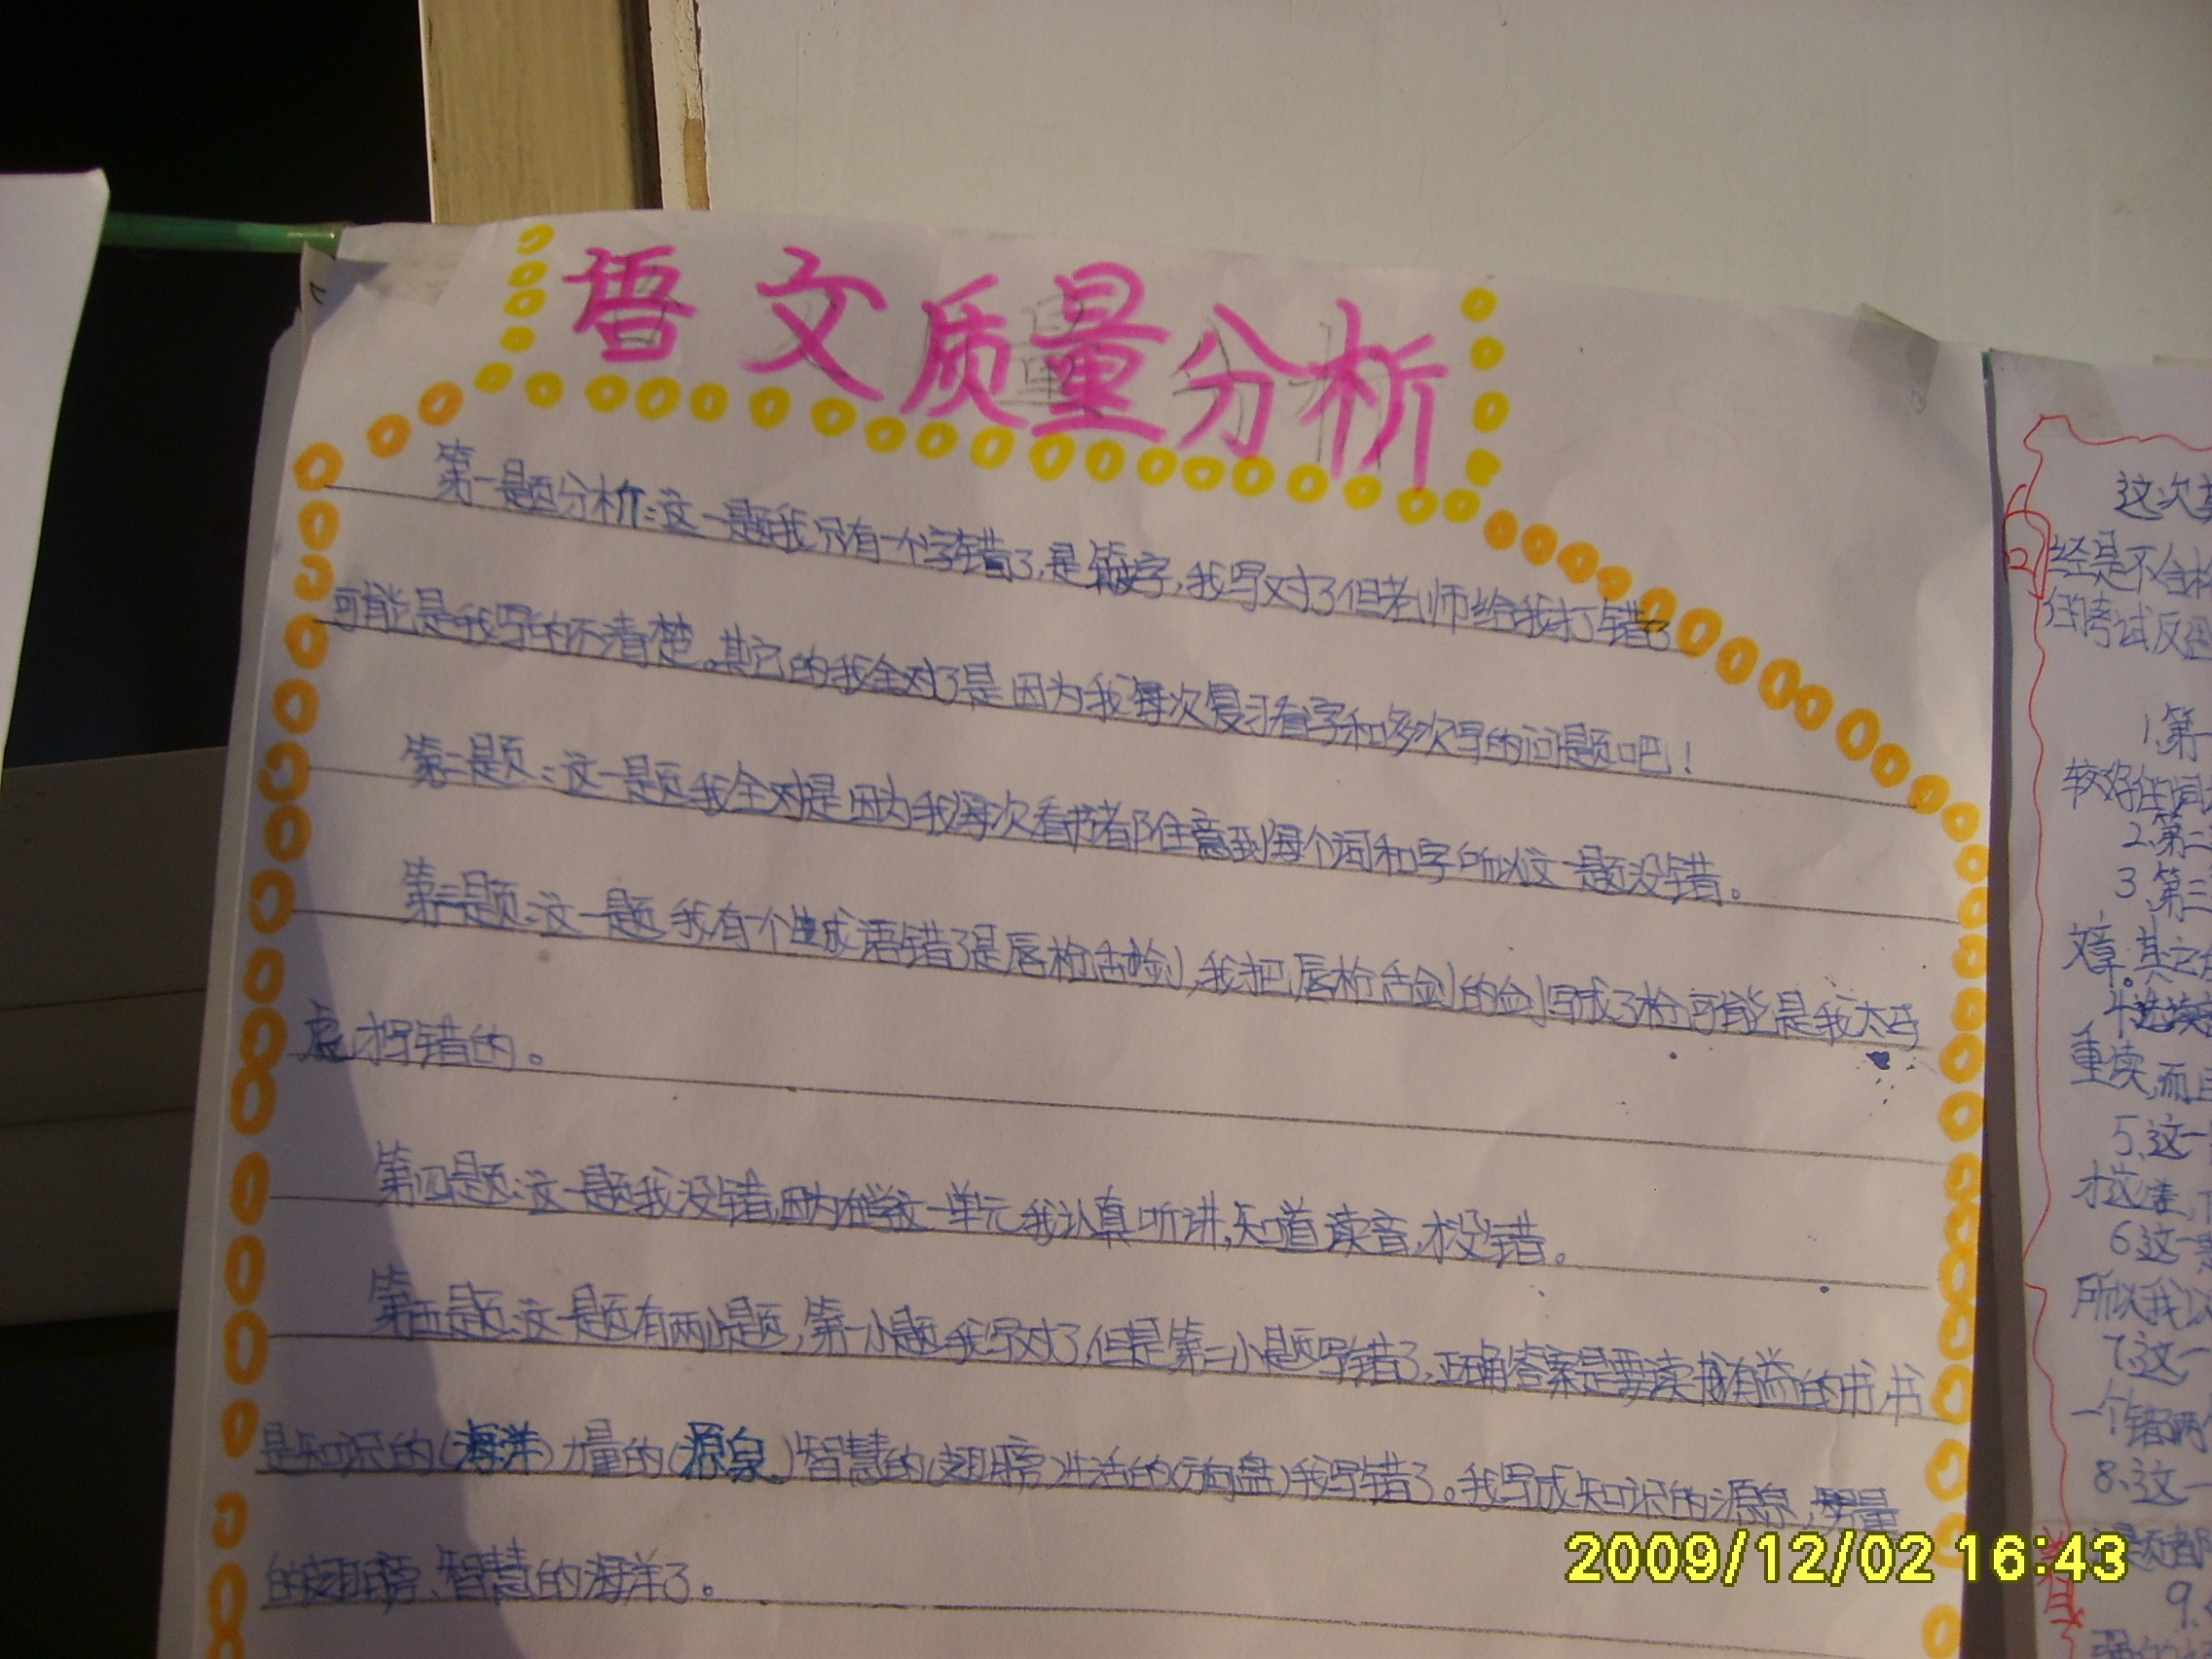 语文质量分析
第一题分析:这一题我只有一个字错了,是 字,我写对了但老师给我打错了
可能是我写的不清楚。其它的我全对了是因为我每次复习看字和多次写的问题吧!
第二题:这一题我全对是因为我每次看书都注意到每个词和字所以这一题没错。
第三题:这一题我有一个 成语错了是唇枪舌剑,我把唇枪舌剑的剑写成了枪可能是我太马
虎才写错的。
第四题:这一题我没错,因为在学这一单元我认真听讲,知道读音,才没错。
第五题:这一题有两小题,第一小题我写对了,但是第二小题写错了,正确答案是要读 有益的书,书
是知识的(海洋)力量的(源泉)智慧的(翅膀)生活的(方向盘)我写错了。我写成知识的源泉,力量
的翅膀、智慧的海洋了。
这次
经是不合格
的考试反
1.第一
较好
2.第二
3.第三
文章。其它的
4.
重读,而且
5.这一
才这差,
6.这一
所以我
7.这一
一个错两
8.这一
9.
2009/12/02 16:43